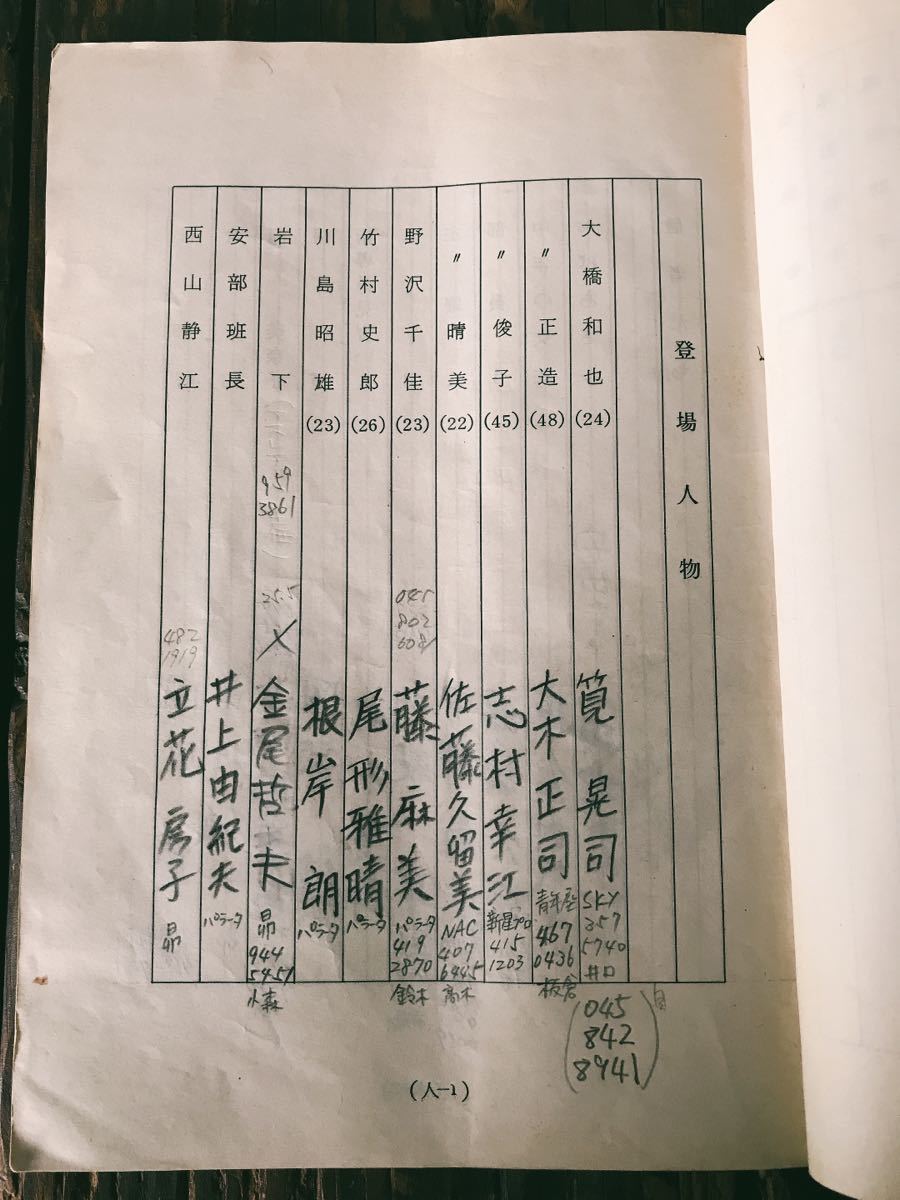 登場人物
大橋和也(24) 筧 晃司 SKY 357 5740 井口
(045 842 8941) 自
〃 正造(48) 大木正司 青年座 467 0436 板倉
〃 俊子(45) 志村幸江 新星プロ 415 1203
〃 晴美(22) 佐藤久留美 NAC 407 6445 高木
野沢千佳(23) 045 802 6081 藤 麻美 パラータ 419 2870 鈴木
竹村史郎(26) 尾形雅晴 パラータ
川島昭雄(23) 根岸 朗 パラータ
岩下 959 3861 25.5 金尾哲夫 昴 944 5451 小森
安部班長 井上由紀夫 パラータ
西山静江 482 1919 立花房子 昴
(人-1)